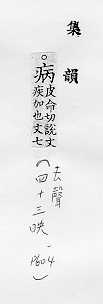 集韻
○病皮命切說文
疾加也文七
(去聲
四十三映-
P604)